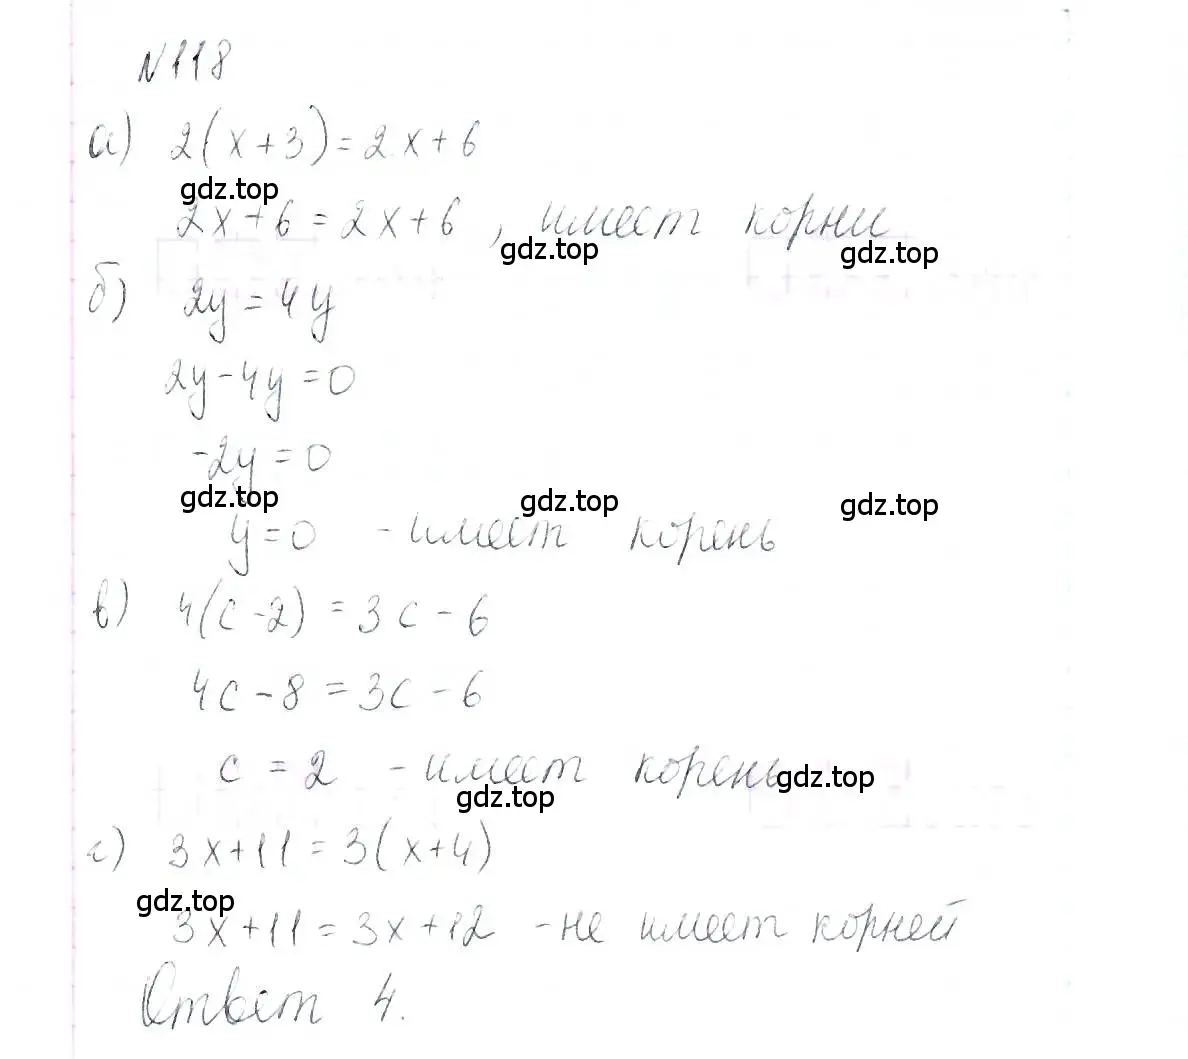 N118
а) 2(x+3)=2x+6
gdz.top
2x+6=2x+6, имеет корни
gdz.top gdz.top
б) 2y=4y
2y-4y=0
-2y=0
gdz.top gdz.top gdz.top
y=0 - имеет корень
в) 4(c-2)=3c-6
4c-8=3c-6
c=2 - имеет корень
gdz.top gdz.top
г) 3x+11=3(x+4)
gdz.top
3x+11=3x+12 - не имеет корней
Ответ 4.